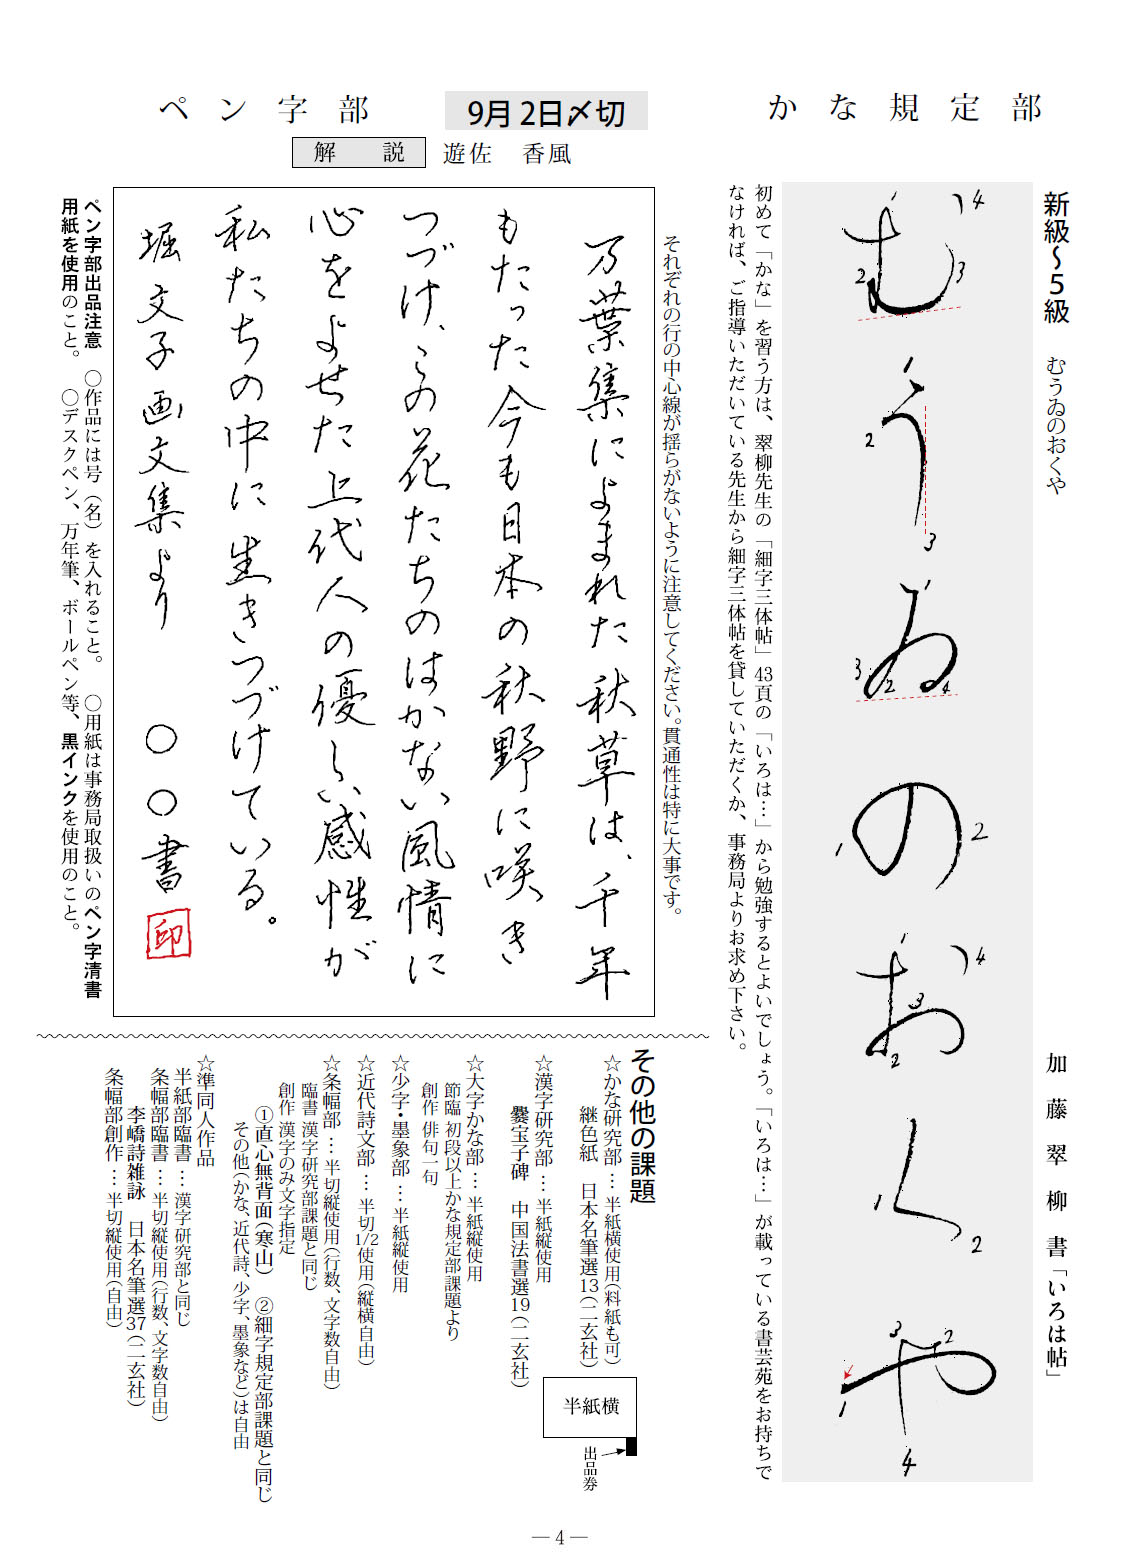 かな規定部
新級〜5級　むうゐのおくや
加藤翠柳書「いろは帖」
むうゐのおくや
1
2
3
4
1
2
3
1
2
3
4
1
2
1
2
3
4
1
2
1
2
3
4
初めて「かな」を習う方は、翠柳先生の「細字三体帖」43頁の「いろは…」から勉強するとよいでしょう。「いろは…」が載っている書芸苑をお持ちで
なければ、ご指導いただいている先生から細字三体帖を貸していただくか、事務局よりお求め下さい。
9月2日〆切
ペン字部
解説　遊佐　香風
それぞれの行の中心線が揺らがないように注意してください。貫通性は特に大事です。
万葉集によまれた秋草は、千年
もたった今も日本の秋野に咲き
つづけ、この花たちのはかない風情に
心をよせた上代人の優しい感性が
私たちの中に生きつづけている。
堀文子画文集より　〇〇書　印
ペン字部出品注意　〇作品には号（名）を入れること。　〇用紙は事務局取扱いのペン字清書
用紙を使用のこと。　〇デスクペン、万年筆、ボールペン等、黒インクを使用のこと。
その他の課題
☆かな研究部…半紙横使用（料紙も可）
継色紙　日本名筆選13（二玄社）
半紙横
出品券
☆漢字研究部…半紙縦使用
爨宝子碑　中国法書選19（二玄社）
☆大字かな部…半紙縦使用
節臨 初段以上かな規定部課題より
創作 俳句一句
☆少字・墨象部…半紙縦使用
☆近代詩文部…半切1/2使用（縦横自由）
☆条幅部…半切縦使用（行数、文字数自由）
臨書 漢字研究部課題と同じ
創作 漢字のみ文字指定
①直心無背面（寒山）　②細字規定部課題と同じ
その他（かな、近代詩、少字、墨象など）は自由
☆準同人作品
半紙部臨書…漢字研究部と同じ
条幅部臨書…半切縦使用（行数、文字数自由）
李嶠詩雑詠　日本名筆選37（二玄社）
条幅部創作…半切縦使用（自由）
― 4 ―